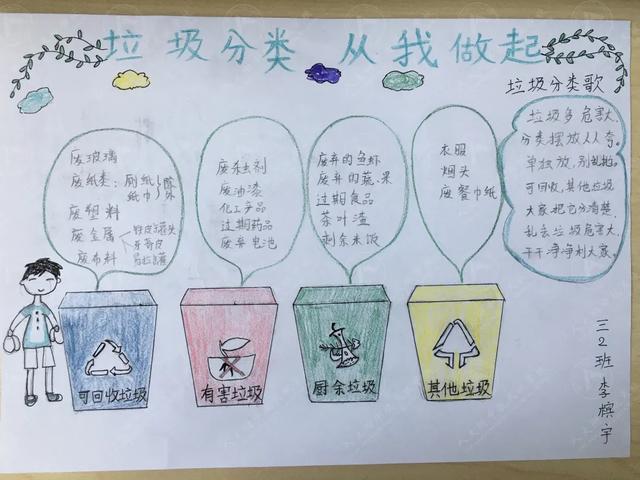 垃圾分类 从我做起
废玻璃
废纸类：厕纸
纸巾 除外
废塑料
废金属
废布料
废杀虫剂
废油漆
化工产品
过期药品
废弃电池
废弃的鱼虾
废弃的蔬、果
过期食品
茶叶渣
剩余米饭
衣服
烟头
废餐巾纸
垃圾分类歌
垃圾多危害大.
分类摆放从
单独放,别乱抛.
可回收,其他垃圾
大家把它分清楚.
乱丢垃圾危害大.
干干净净利大家.
可回收垃圾
有害垃圾
厨余垃圾
其他垃圾
三2班李槟宇